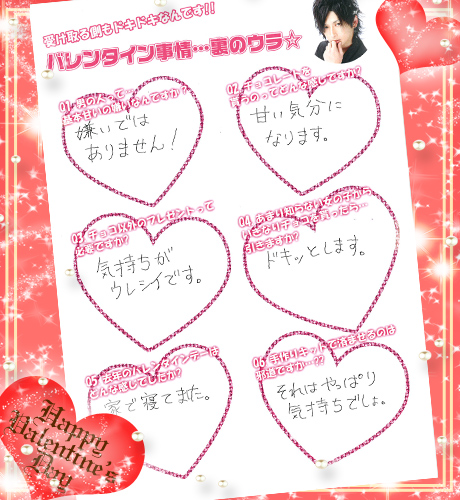 受け取る側もドキドキなんです!!
バレンタイン事情…裏のウラ☆
01 男の人って…
基本甘いの嫌いなんですか?
嫌いでは
ありません!
02 チョコレートを
貰うのってどんな感じですか?
甘い気分に
なります。
03 チョコ以外のプレゼントって
必要ですか?
気持ちが
ウレシイです。
04 あまり知らない女の子から
いきなりチョコを貰ったら…
引きますか?
ドキッとします。
05 去年のバレンタインデーは
どんな感じでしたか?
家で寝てました。
06 手作りキットで済ませるのは
邪道ですか…?
それはやっぱり
気持ちでしょ。
Happy
Valentine's
Day